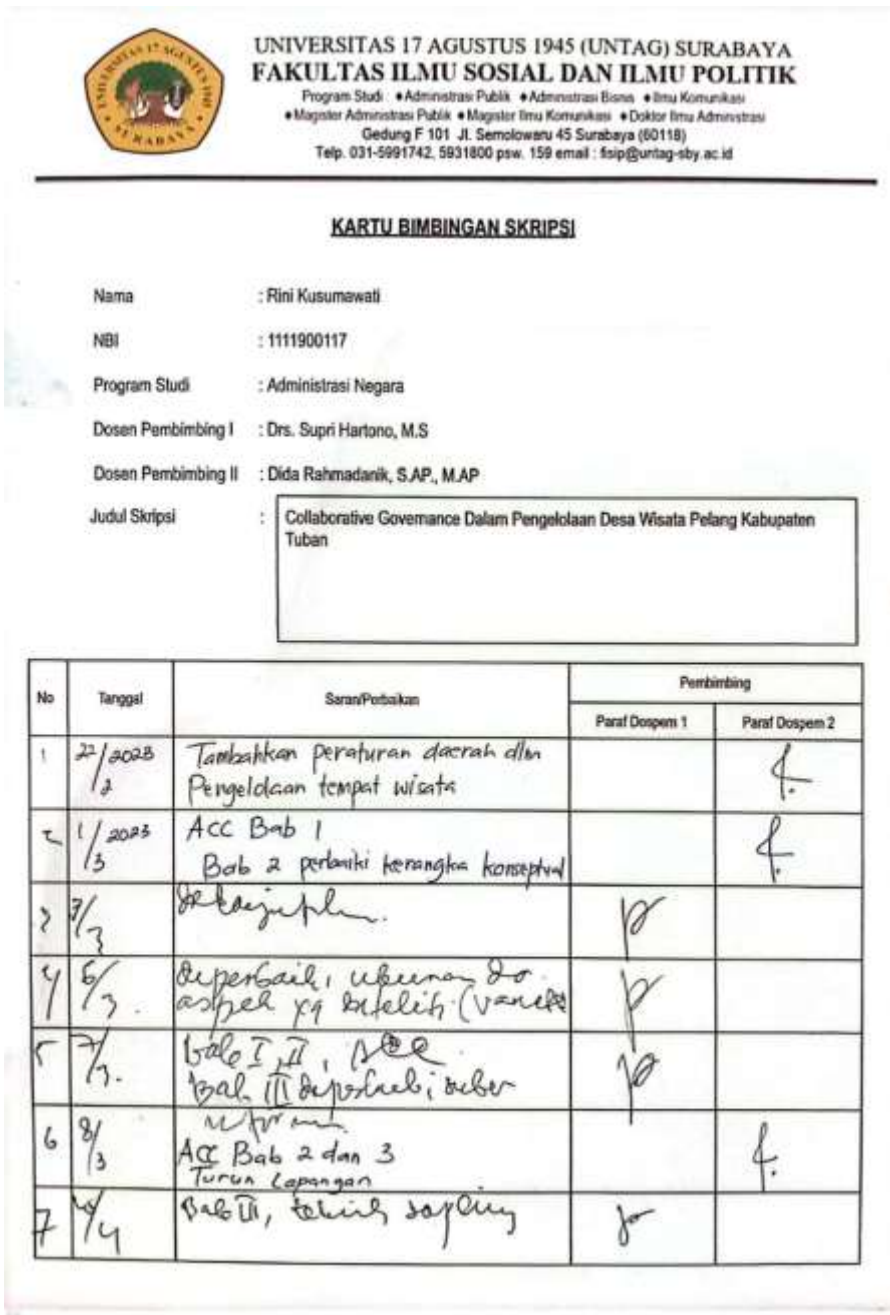 UNIVERSITAS 17 AGUSTUS 1945
SURABAYA
UNIVERSITAS 17 AGUSTUS 1945 (UNTAG) SURABAYA
FAKULTAS ILMU SOSIAL DAN ILMU POLITIK
Program Studi : ♦Administrasi Publik ♦Administrasi Bisnis ♦Ilmu Komunikasi
♦Magister Administrasi Publik ♦Magister Ilmu Komunikasi ♦Doktor Ilmu Administrasi
Gedung F 101 Jl. Semolowaru 45 Surabaya (60118)
Telp. 031-5991742, 5931800 psw. 159 email : fisip@untag-sby.ac.id
KARTU BIMBINGAN SKRIPSI
Nama : Rini Kusumawati
NBI : 1111900117
Program Studi : Administrasi Negara
Dosen Pembimbing I : Drs. Supri Hartono, M.S
Dosen Pembimbing II : Dida Rahmadanik, S.AP., M.AP
Judul Skripsi : Collaborative Governance Dalam Pengelolaan Desa Wisata Pelang Kabupaten
Tuban
No Tanggal Saran/Perbaikan Pembimbing
Paraf Dospem 1 Paraf Dospem 2
1 22/2 2023 Tambahkan peraturan daerah dlm
Pengelolaan tempat wisata
2 1/3 2023 ACC Bab 1
Bab 2 perbaiki kerangka konseptual
3 3/3
4 6/3. diperbaiki
aspek yg
5 7/3. bab I, II, Acc
Bab III
6 8/3 ACC Bab 2 dan 3
Turun Lapangan
7 Bab III, teknik